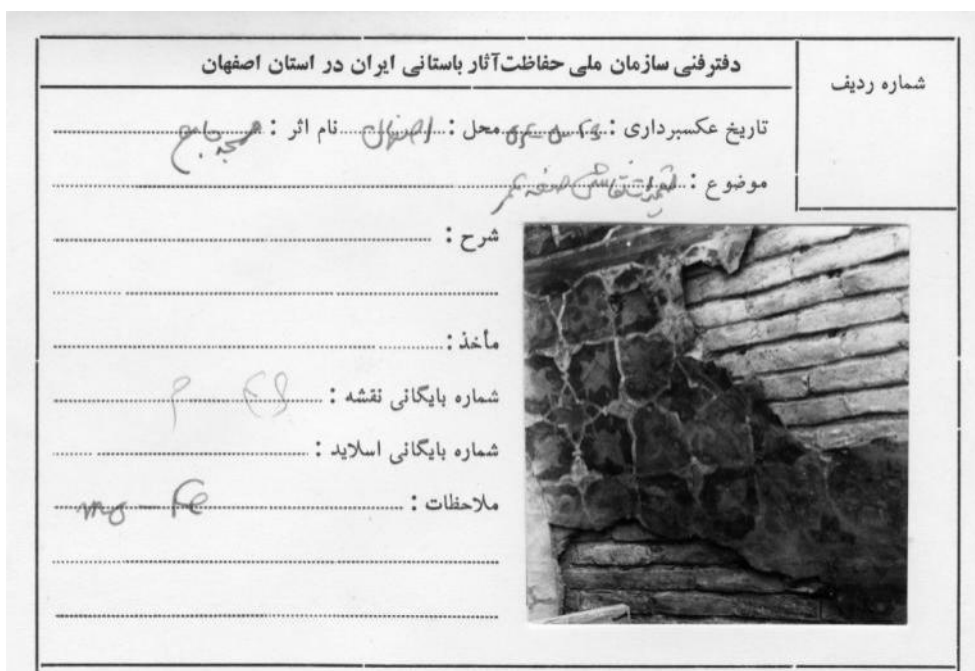 دفترفنی سازمان ملی حفاظت‌آثار باستانی ایران در استان اصفهان
شماره ردیف
تاریخ عکسبرداری : محل : اصفهان نام اثر : مسجد جامع
موضوع : نقاشی صفه عمر
شرح :
مأخذ :
شماره بایگانی نقشه :
شماره بایگانی اسلاید :
ملاحظات :